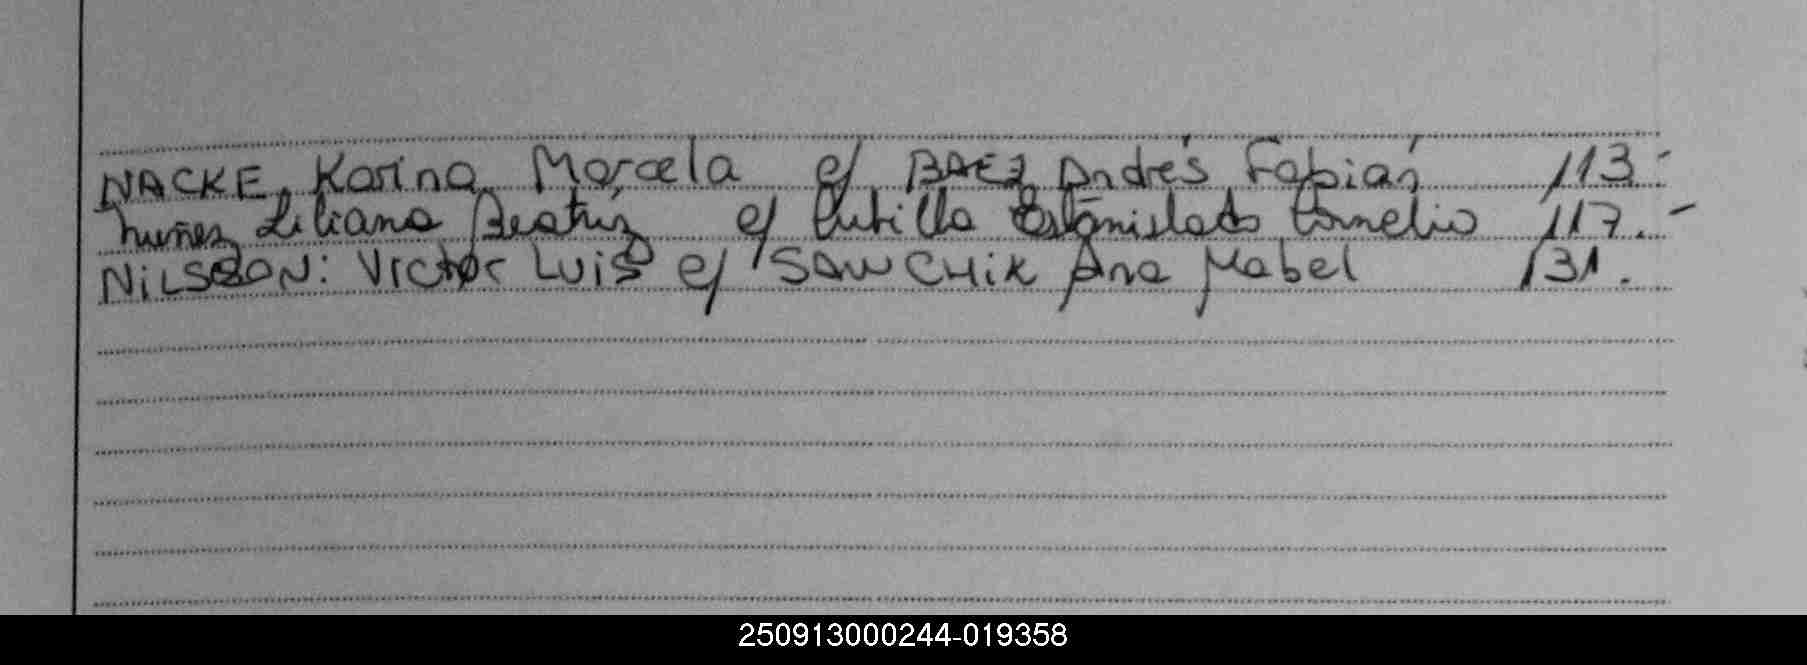 NACKE, Karina Marcela c/ BAEZ Andrés Fabián 113.-
Nuñez Liliana Beatriz c/ Cubilla Estanislado Cornelio 117.-
NILSSON: Victor Luis c/ SAWCHIK Ana Mabel 131.
250913000244-019358